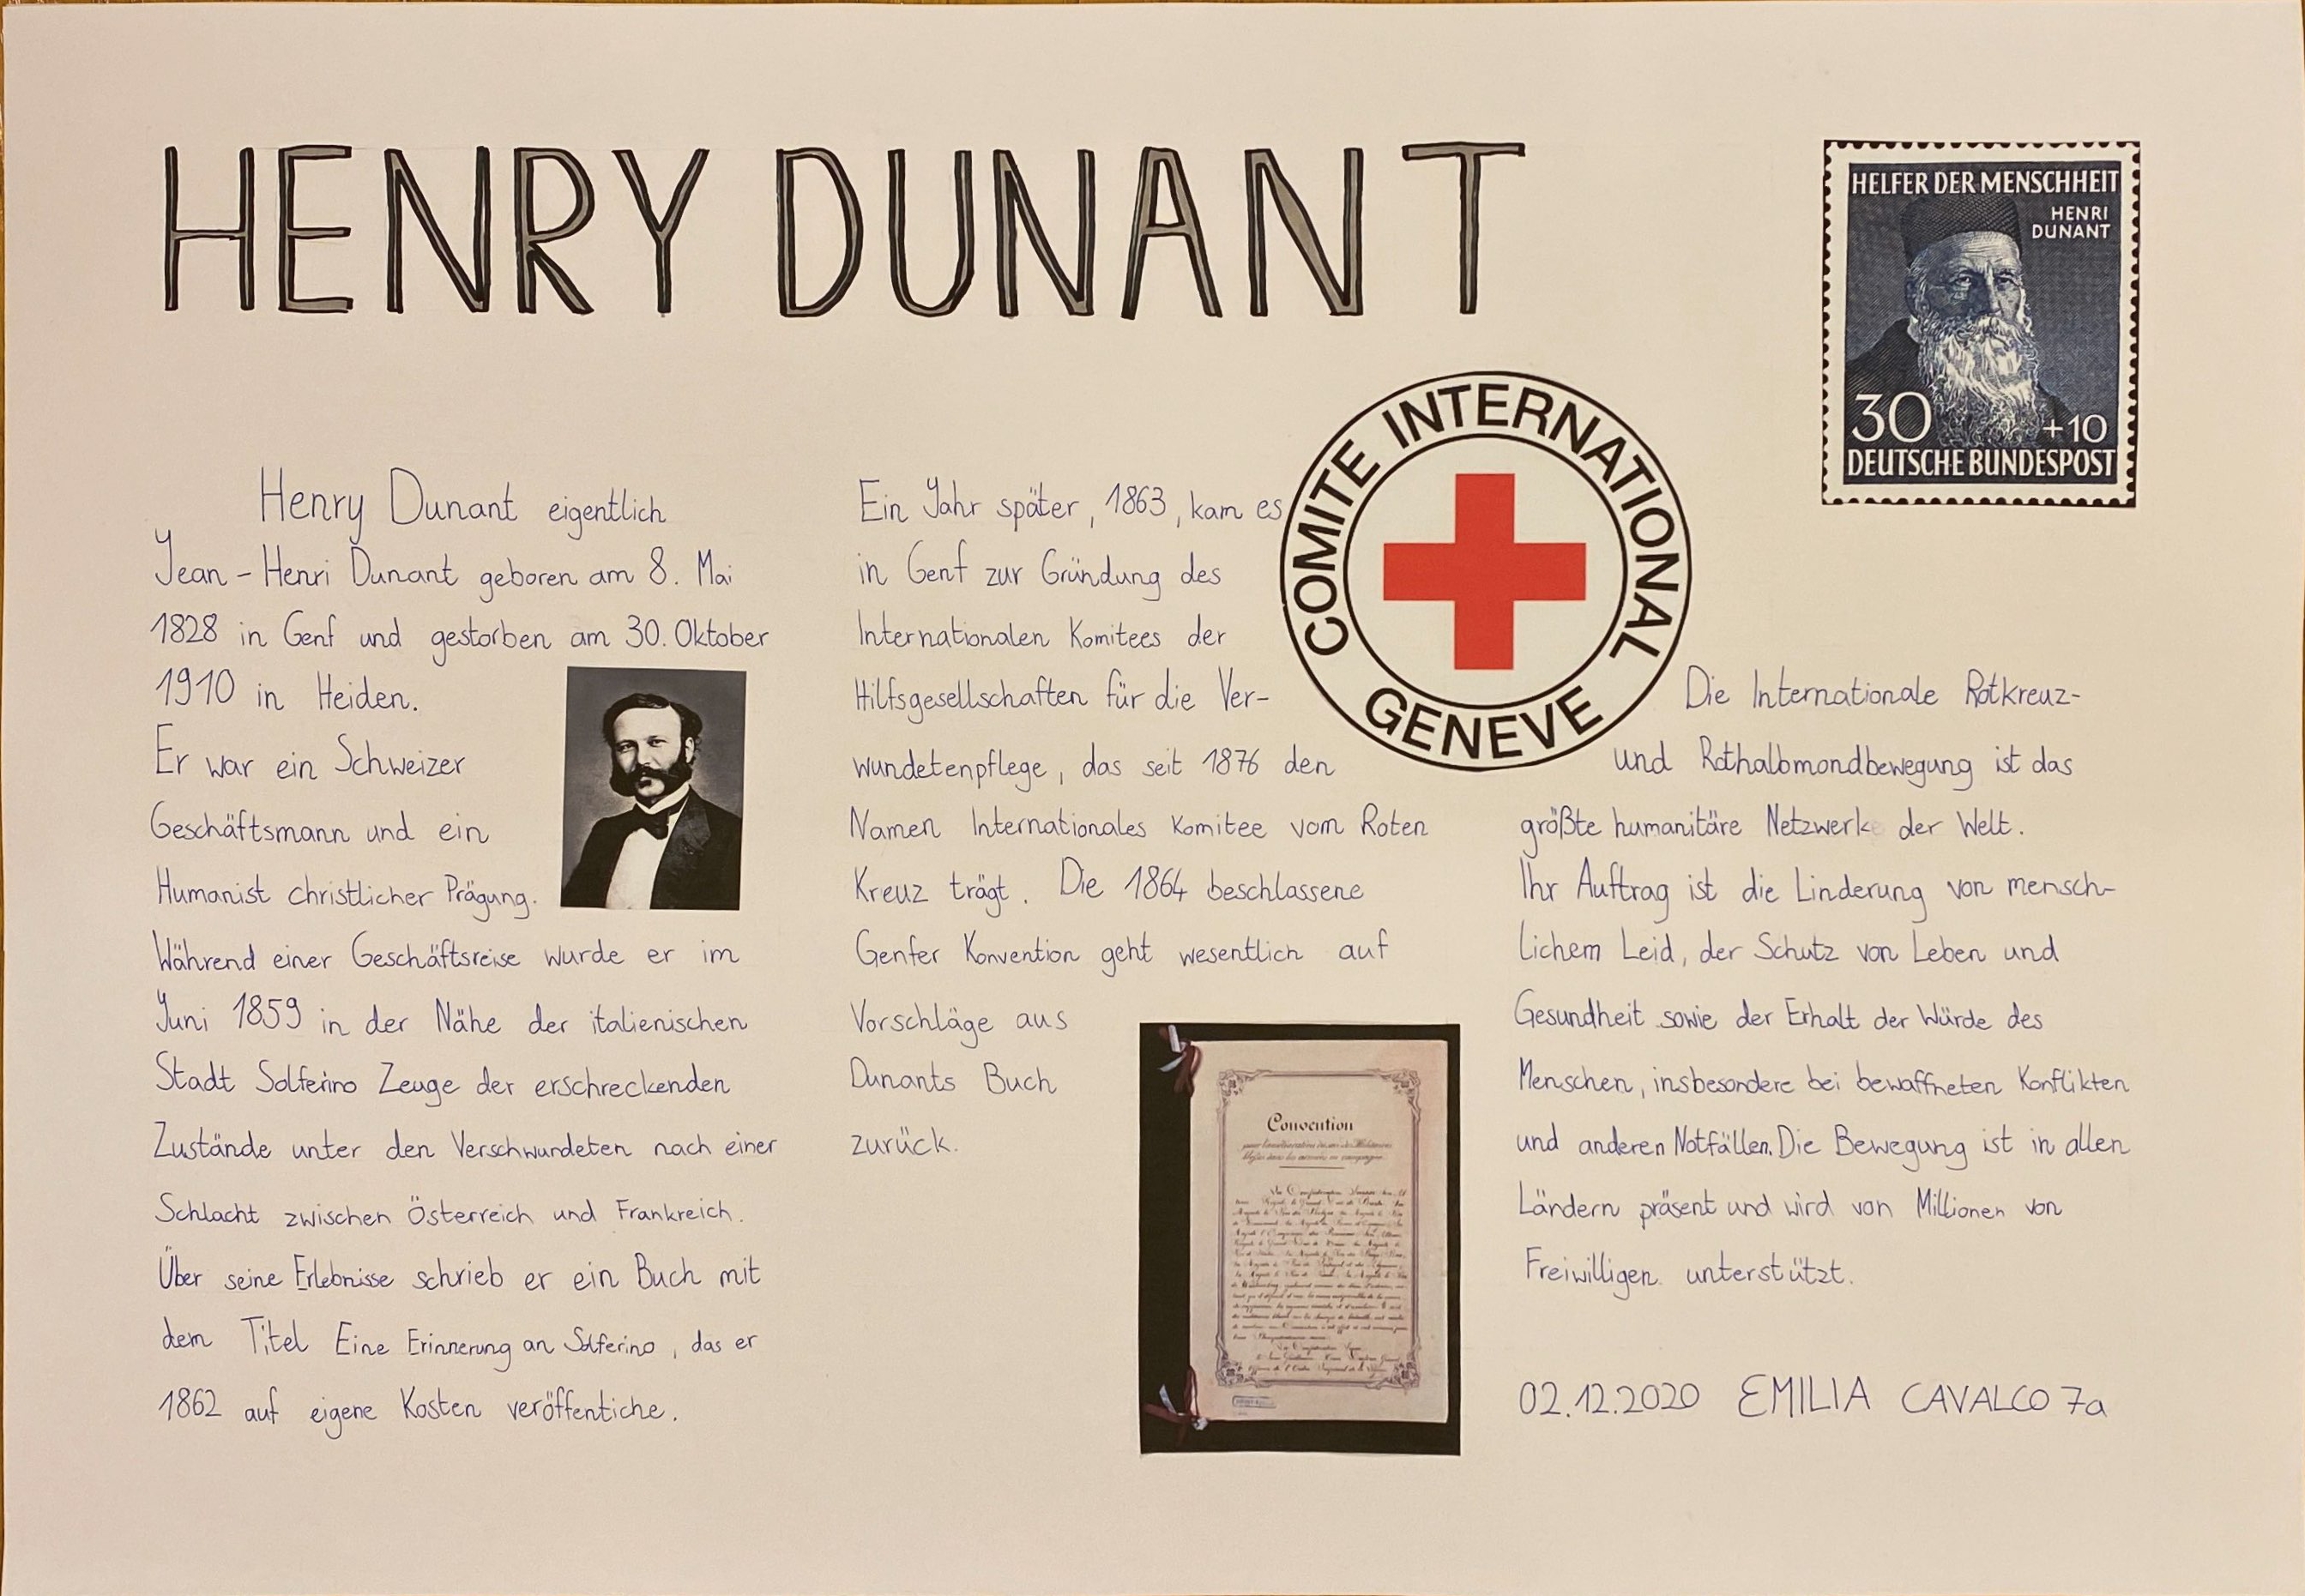 HENRY DUNANT
HELFER DER MENSCHHEIT
HENRI
DUNANT
30 +10
DEUTSCHE BUNDESPOST
Henry Dunant eigentlich
Jean-Henri Dunant geboren am 8. Mai
1828 in Genf und gestorben am 30. Oktober
1910 in Heiden.
Er war ein Schweizer
Geschäftsmann und ein
Humanist christlicher Prägung.
Während einer Geschäftsreise wurde er im
Juni 1859 in der Nähe der italienischen
Stadt Solferino Zeuge der erschreckenden
Zustände unter den Verschwundeten nach einer
Schlacht zwischen Österreich und Frankreich.
Über seine Erlebnisse schrieb er ein Buch mit
dem Titel Eine Erinnerung an Solferino, das er
1862 auf eigene Kosten veröffentiche.
Ein Jahr später, 1863, kam es
in Genf zur Gründung des
Internationalen Komitees der
Hilfsgesellschaften für die Ver-
wundetenpflege, das seit 1876 den
Namen Internationales Komitee vom Roten
Kreuz trägt. Die 1864 beschlassene
Genfer Konvention geht wesentlich auf
Vorschläge aus
Dunants Buch
zurück.
COMITE INTERNATIONAL
GENEVE
Convention
Die Internationale Rotkreuz-
und Rothalbmondbewegung ist das
größte humanitäre Netzwerk der Welt.
Ihr Auftrag ist die Linderung von mensch-
lichem Leid, der Schutz von Leben und
Gesundheit sowie der Erhalt der Würde des
Menschen, insbesondere bei bewaffneten Konflikten
und anderen Notfällen. Die Bewegung ist in allen
Ländern präsent und wird von Millionen von
Freiwilligen unterstützt.
02.12.2020 EMILIA CAVALCO 7a